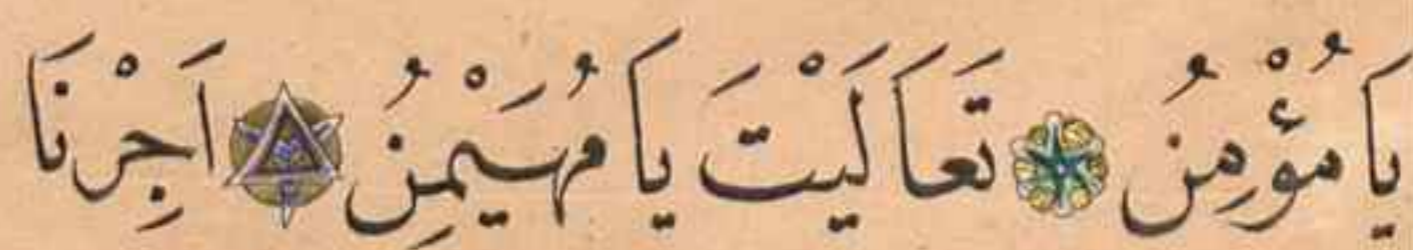 يَا مُؤْمِنُ تَعَالَيْتَ يَا مُهَيْمِنُ اَجِرْنَا